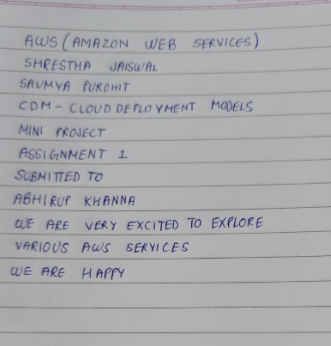 AWS (AMAZON WEB SERVICES)
SHRESTHA JAISWAL
SAUMYA PUROHIT
CDM - CLOUD DEPLOYMENT MODELS
MINI PROJECT
ASSIGNMENT 1
SUBMITTED TO
ABHIRUP KHANNA
WE ARE VERY EXCITED TO EXPLORE
VARIOUS AWS SERVICES
WE ARE HAPPY